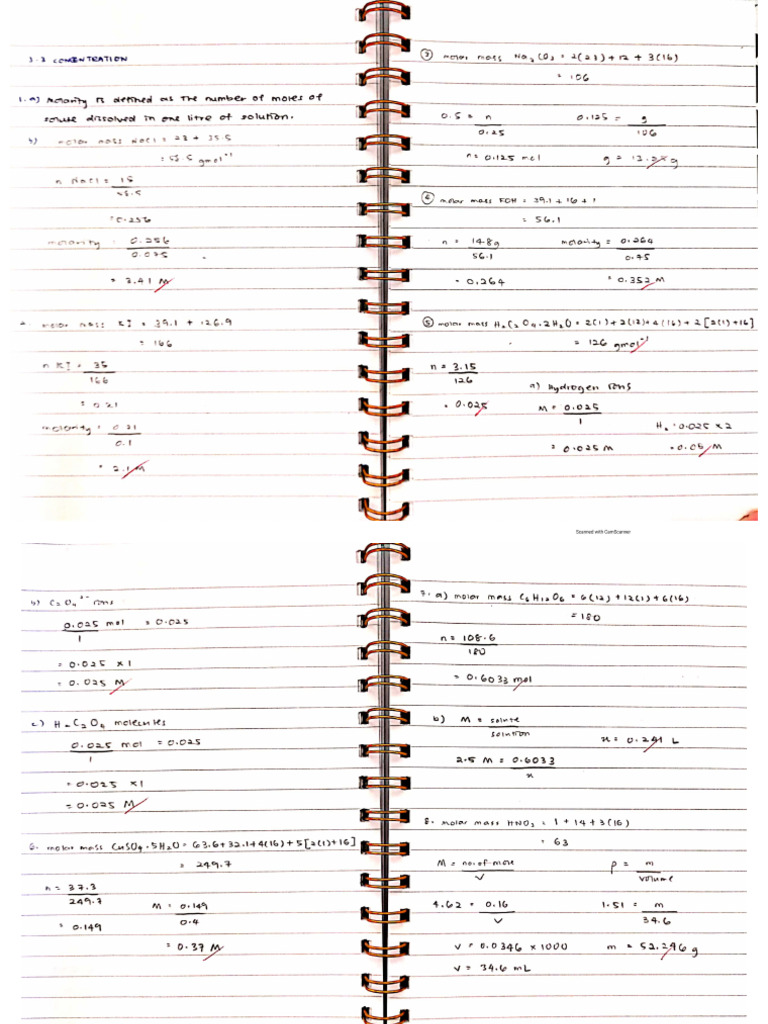 3.3 CONCENTRATION
1. a) Molarity is defined as the number of moles of
solute dissolved in one litre of solution.
b) molar mass NaCl = 23 + 35.5
= 58.5 gmol⁻¹
n NaCl = 15
58.5
= 0.256
molarity = 0.256
0.075
= 3.41 M
2. molar mass KI = 39.1 + 126.9
= 166
n KI = 35
166
= 0.21
molarity = 0.21
0.1
= 2.1 M
③ molar mass Na₂CO₃ = 2(23) + 12 + 3(16)
= 106
0.5 = n
0.25
n = 0.125 mol
0.125 = g
106
g = 13.25 g
④ molar mass KOH = 39.1 + 16 + 1
= 56.1
n = 14.8g
56.1
= 0.264
molarity = 0.264
0.45
= 0.352 M
⑤ molar mass H₂C₂O₄.2H₂O = 2(1) + 2(12) + 4(16) + 2[2(1)+16]
= 126 gmol⁻¹
n = 3.15
126
= 0.025
a) Hydrogen ions
M = 0.025
1
= 0.025 M
H₂ = 0.025 x 2
= 0.05 M
Scanned with CamScanner
b) C₂O₄²⁻ ions
0.025 mol = 0.025
1
= 0.025 x 1
= 0.025 M
c) H₂C₂O₄ molecules
0.025 mol = 0.025
1
= 0.025 x1
= 0.025 M
6. molar mass CuSO₄.5H₂O = 63.6+32.1+4(16)+5[2(1)+16]
= 249.7
n = 37.3
249.7
= 0.149
M = 0.149
0.4
= 0.37 M
7. a) molar mass C₆H₁₂O₆ = 6(12) + 12(1) + 6(16)
= 180
n = 108.6
180
= 0.6033 mol
b) M = solute
solution
2.5 M = 0.6033
x
x = 0.241 L
8. molar mass HNO₃ = 1 + 14 + 3(16)
= 63
M = no. of mole
V
4.62 = 0.16
V
V = 0.0346 x 1000
V = 34.6 mL
ρ = m
volume
1.51 = m
34.6
m = 52.246 g